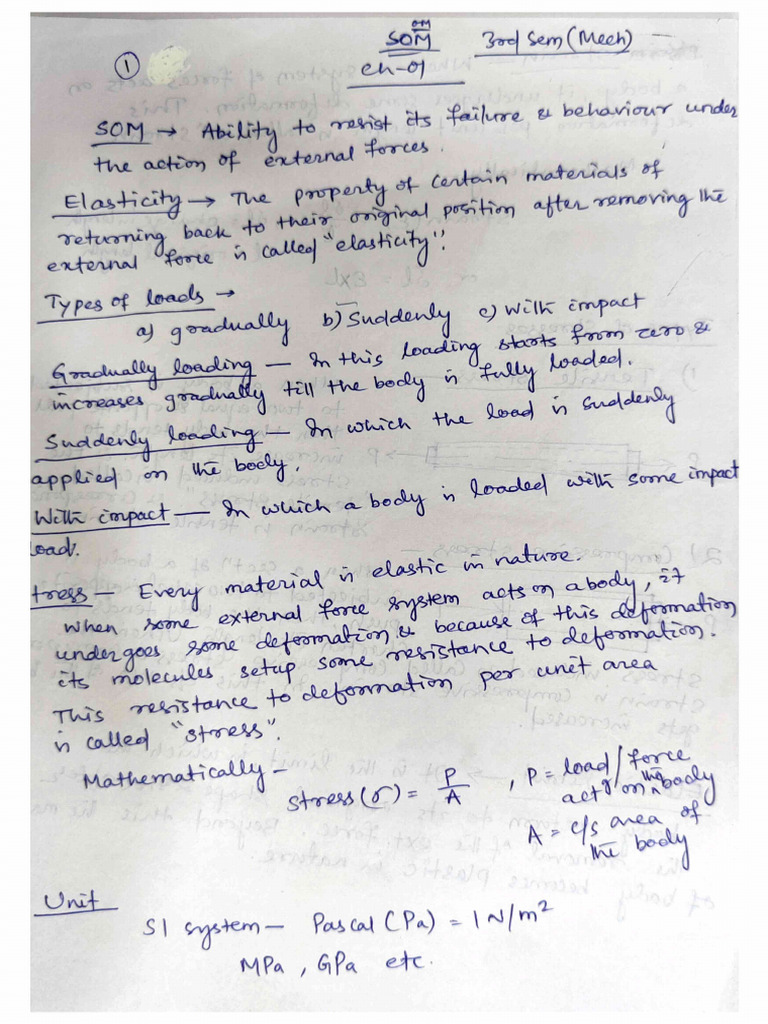 OM
SOM 3rd Sem (Mech)
1
Ch-01
SOM → Ability to resist its failure & behaviour under
the action of external forces.
Elasticity → The property of certain materials of
returning back to their original position after removing the
external force is called "elasticity".
Types of loads →
a) gradually b) Suddenly c) With impact
Gradually loading — In this loading starts from zero &
increases gradually till the body is fully loaded.
Suddenly loading — In which the load is suddenly
applied on the body.
With impact — In which a body is loaded with some impact
load.
tress — Every material is elastic in nature.
When some external force system acts on a body, it
undergoes some deformation & because of this deformation
its molecules setup some resistance to deformation.
This resistance to deformation per unit area
is called "stress".
Mathematically —
Stress (σ) = P/A , P = load/force
act^g on the body
A = c/s area of
the body
Unit
SI system — Pascal (Pa) = 1 N/m²
MPa, GPa etc.